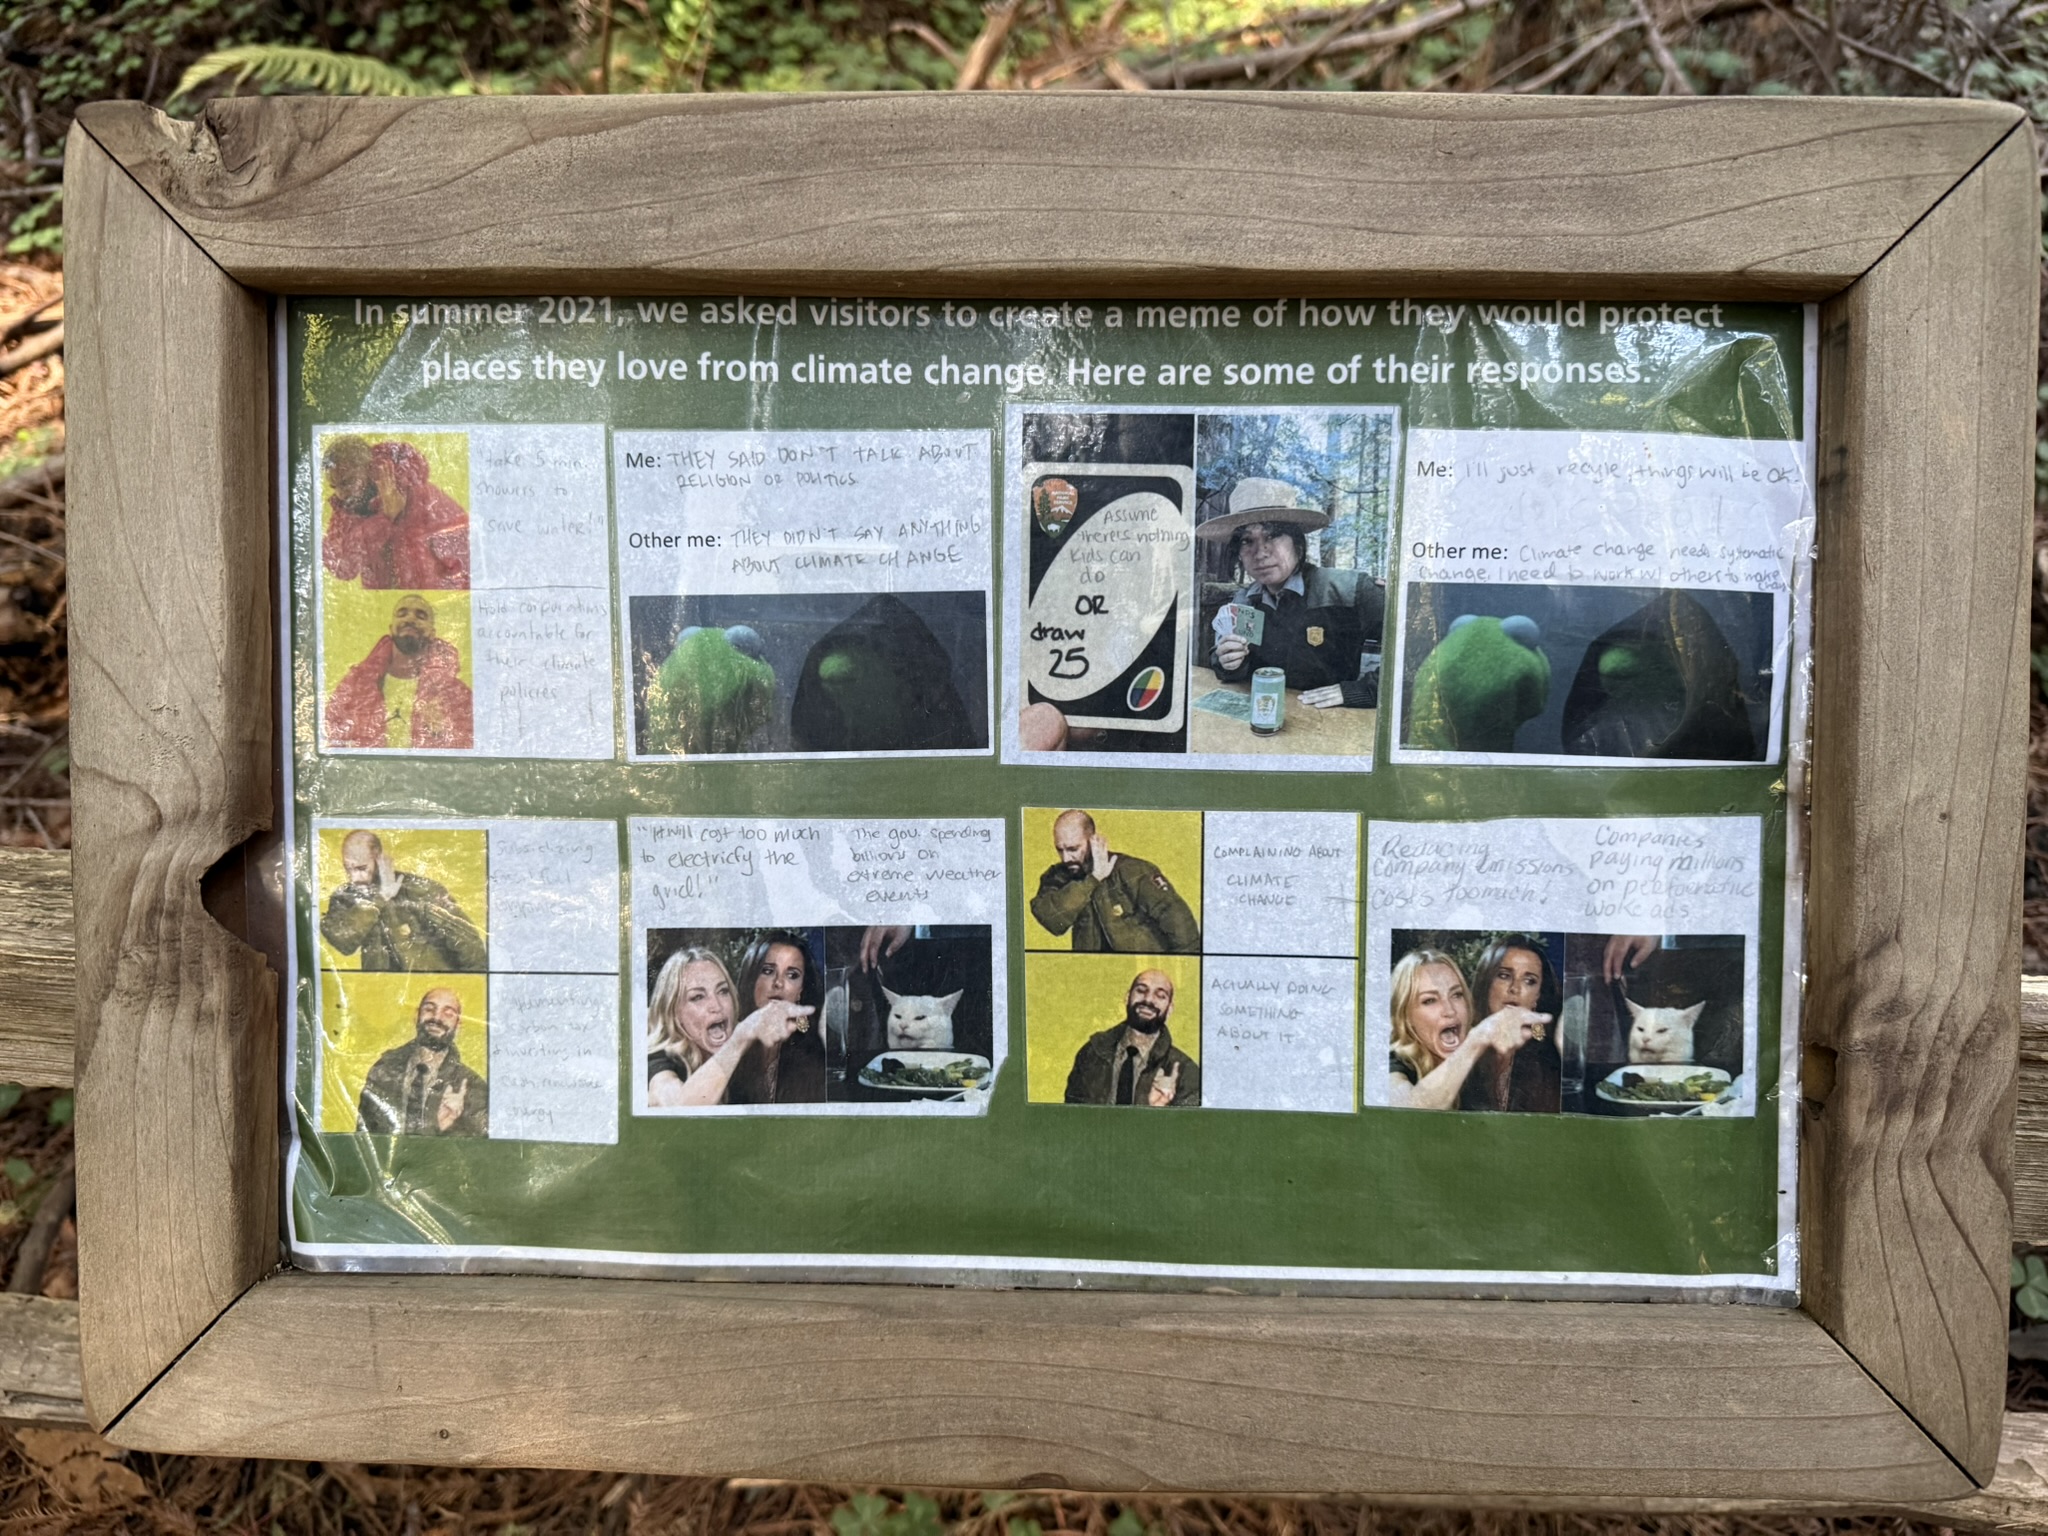 In summer 2021, we asked visitors to create a meme of how they would protect
places they love from climate change. Here are some of their responses.
"take 5 min.
showers to
save water!"
Hold corporations
accountable for
their climate
policies
Me: THEY SAID DON'T TALK ABOUT
RELIGION OR POLITICS
Other me: THEY DIDN'T SAY ANYTHING
ABOUT CLIMATE CHANGE
NATIONAL
PARK
SERVICE
Assume
there's nothing
Kids can
do
OR
draw
25
Me: I'll just recycle, things will be OK!
Other me: Climate change needs systematic
change, I need to work w/ others to make
Subsidizing
fossil fuel
companies
Implementing
carbon tax
+ investing in
energy
"It will cost too much
to electricfy the
grid!"
The gov. spending
billions on
extreme weather
events
COMPLAINING ABOUT
CLIMATE
CHANGE
ACTUALLY DOING
SOMETHING
ABOUT IT
Reducing
Company emissions
Costs too much!
Companies
paying millions
on performative
woke ads